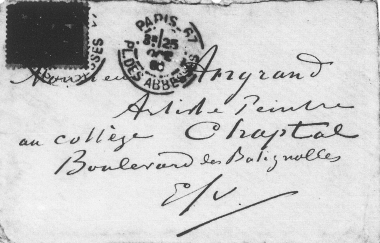 PARIS. 67
PL. DES ABBESSES
Monsieur Angrand
Artiste Peintre
au collège Chaptal
Boulevard des Batignolles
E/v.